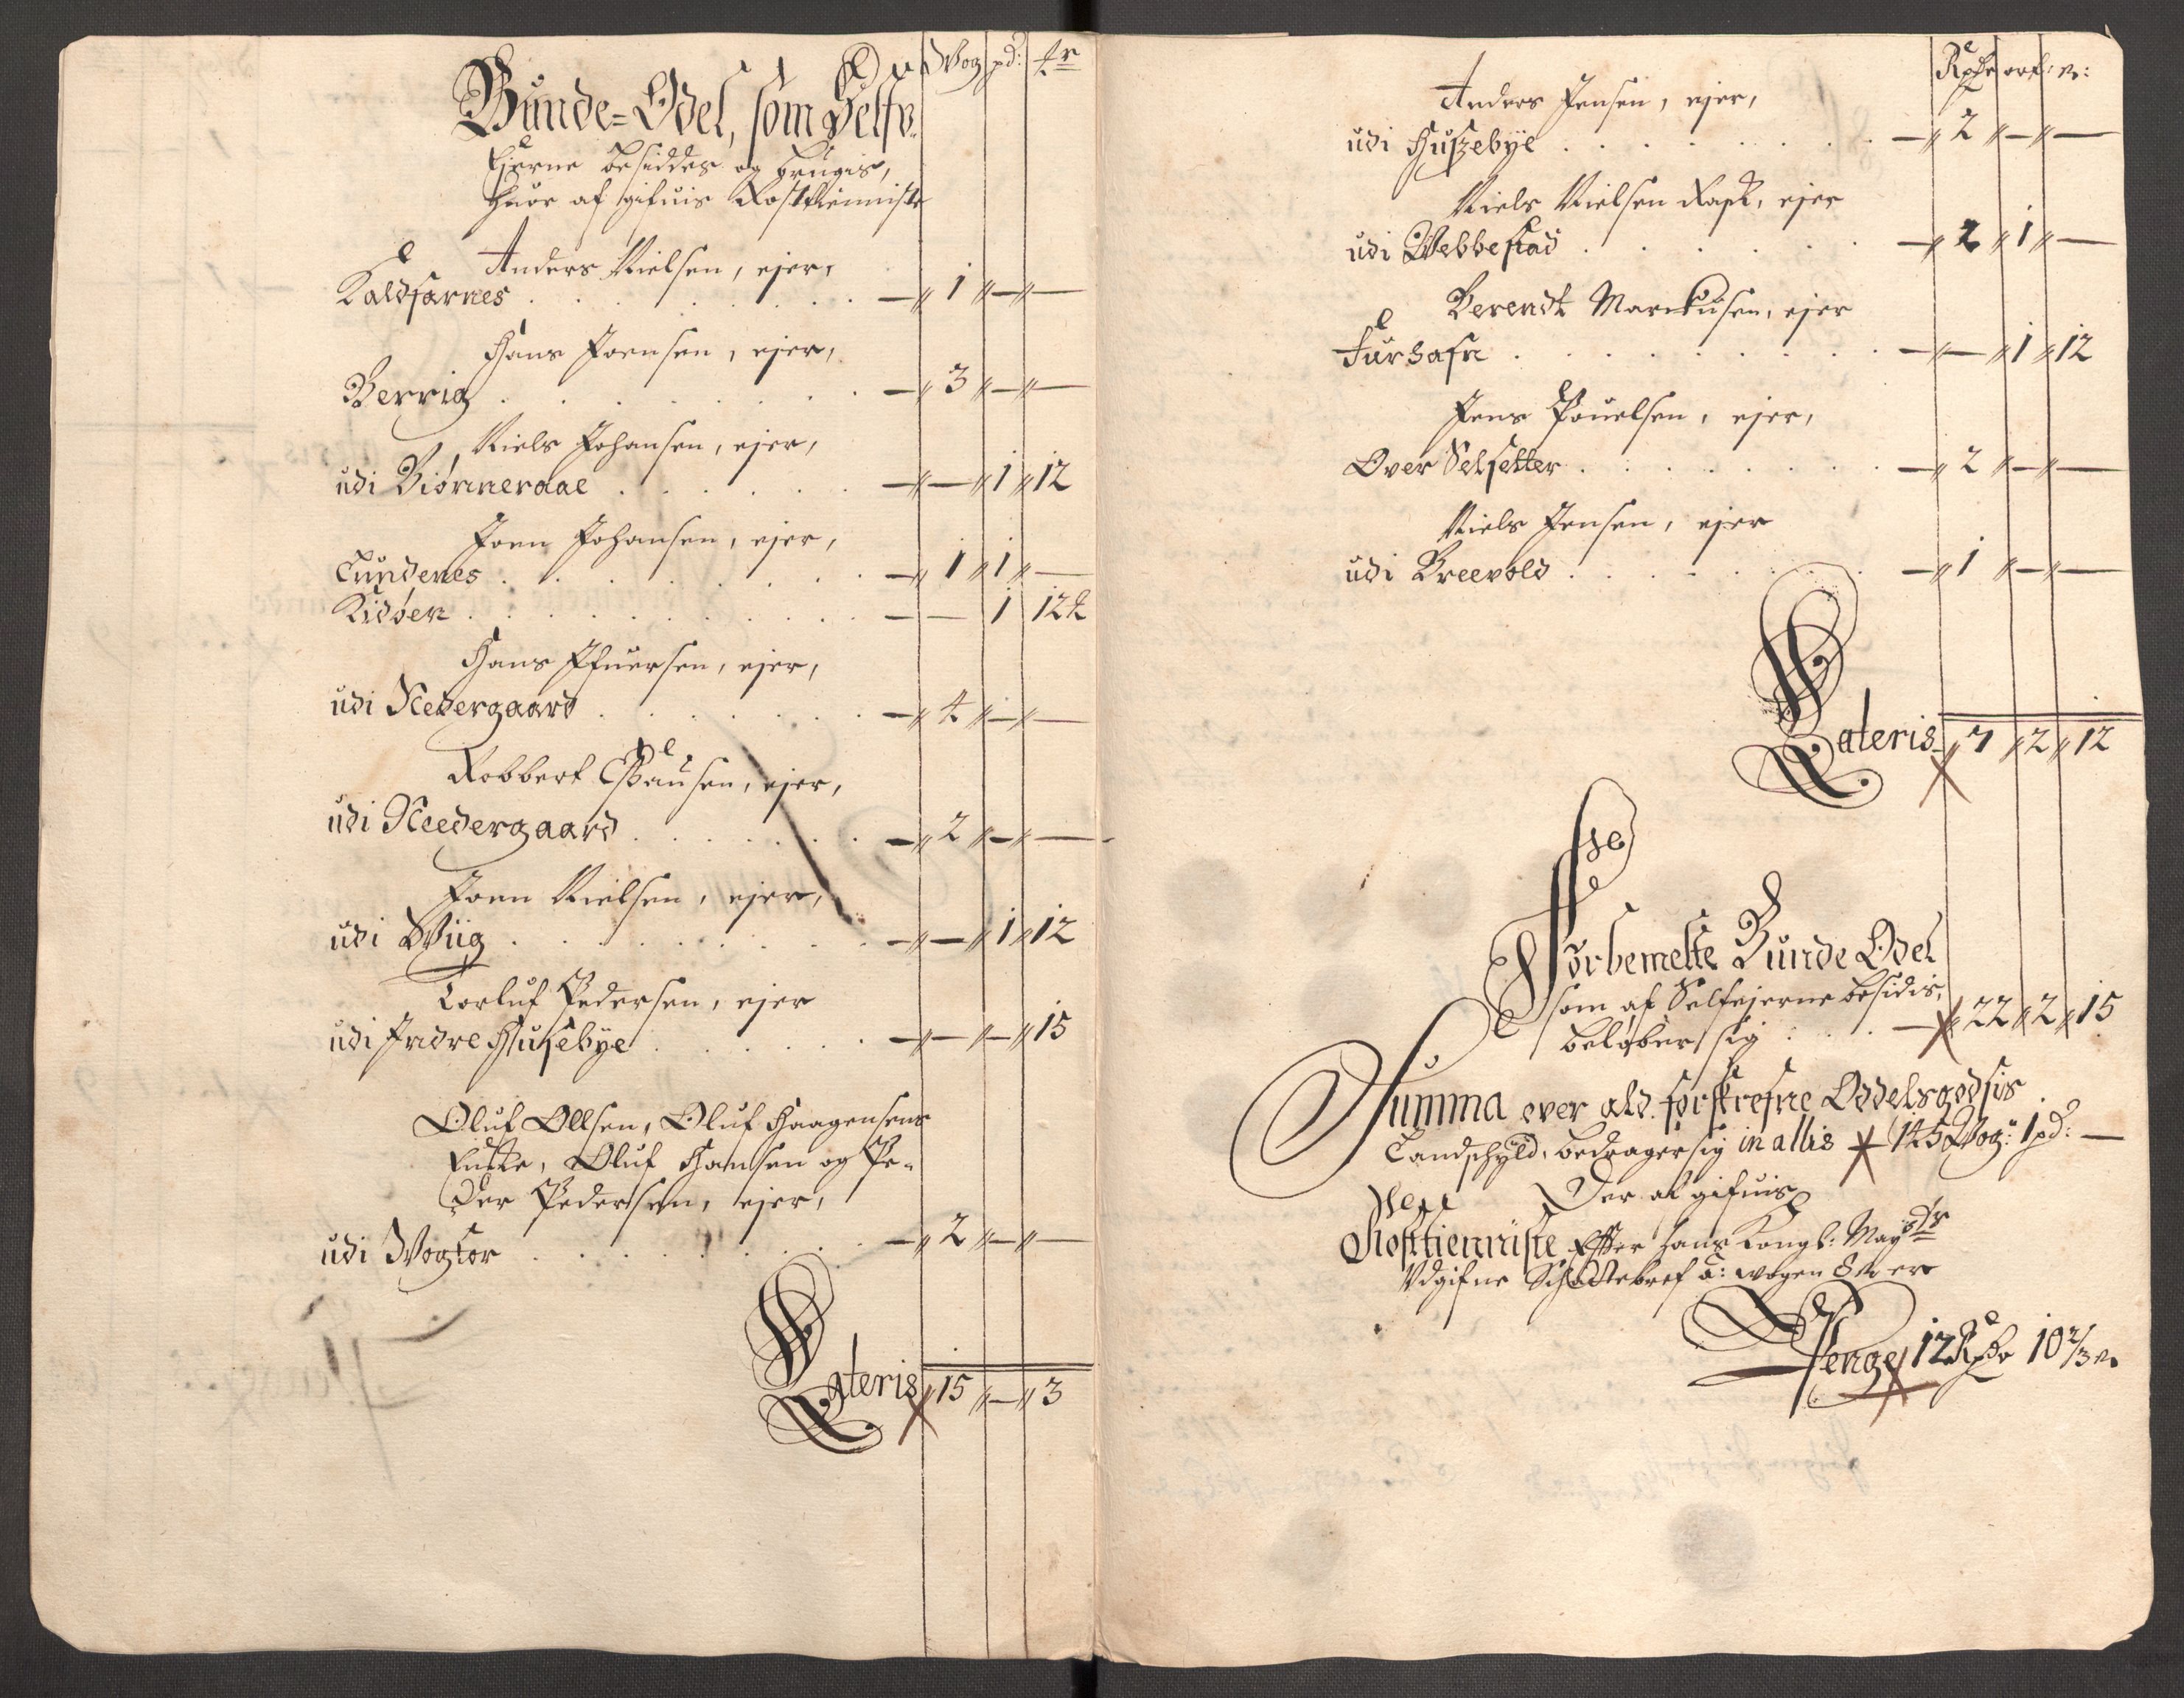 Wog pd: ℔r
Bunde=Odel, som Selfv
Eierne besiddes og brugis,
Huor af gifuis Rostienniste
Anders Nielsen, ejer,
Kaldsarnes . . . . . . . — 〃 1 〃 — 〃 —
Hans Joensen, ejer,
Berrig . . . . . . . — 〃 3 〃 — 〃 —
Niels Johansen, ejer,
udi Biørneraae . . . . . — 〃 — 〃 1 〃 12
Joen Johansen, ejer,
Lundenes . . . . . . . — 〃 1 〃 1 〃 —
Kiddøen . . . . . . . — — 1 12
Hans Ifuersen, ejer,
udi Nedergaard . . . . . — 〃 4 〃 — 〃 —
Robbert ejer,
udi Needergaard . . . . . — 〃 2 〃 — 〃 —
Joen Nielsen, ejer,
udi Wiig . . . . . . . — 〃 — 〃 1 〃 12
Torluf Pedersen, ejer
udi Indre Husebye . . . . . — 〃 — 〃 — 〃 15
Oluf Ollsen, Oluf Haagensens
Encke, Oluf Hansen og Pe-
der Pedersen, ejer,
udi Wogtor . . . . . . . — 〃 2 〃 — 〃 —
Lateris 〃 15 〃 — 〃 3
Rpdr ort: s:
Anders Jensen, ejer,
udi Huszebye . . . . . . . — 〃 2 〃 — 〃 —
Niels Nielsen Rask, ejer
udi Webbestad . . . . . — 〃 2 〃 1 〃 —
Berendt Marckusen, ejer
Furhafn . . . . . . . — 〃 — 〃 1 〃 12
Jens Pouelsen, ejer,
Over Selsetter . . . . . — 〃 2 〃 — 〃 —
Niels Jensen, ejer
udi Breevold . . . . . — 〃 1 〃 — 〃 —
Lateris 〃 7 〃 2 〃 12
Forbemelte Bunde Odel
som af Selfeierne besidis,
beløber sig . . . — 〃 22 〃 2 〃 15
Summa over ald forskrefne Oddelsgodsis
Landschyld, bedrager sig in allis 145 Wog: 1 pd: —
Der af gifuis
Rosttienniste Efter Hans Kongl: Mayts
Udgifne Schattebref á: wogen 8 s er
Penge 12 Rpdr 10 2/3 s